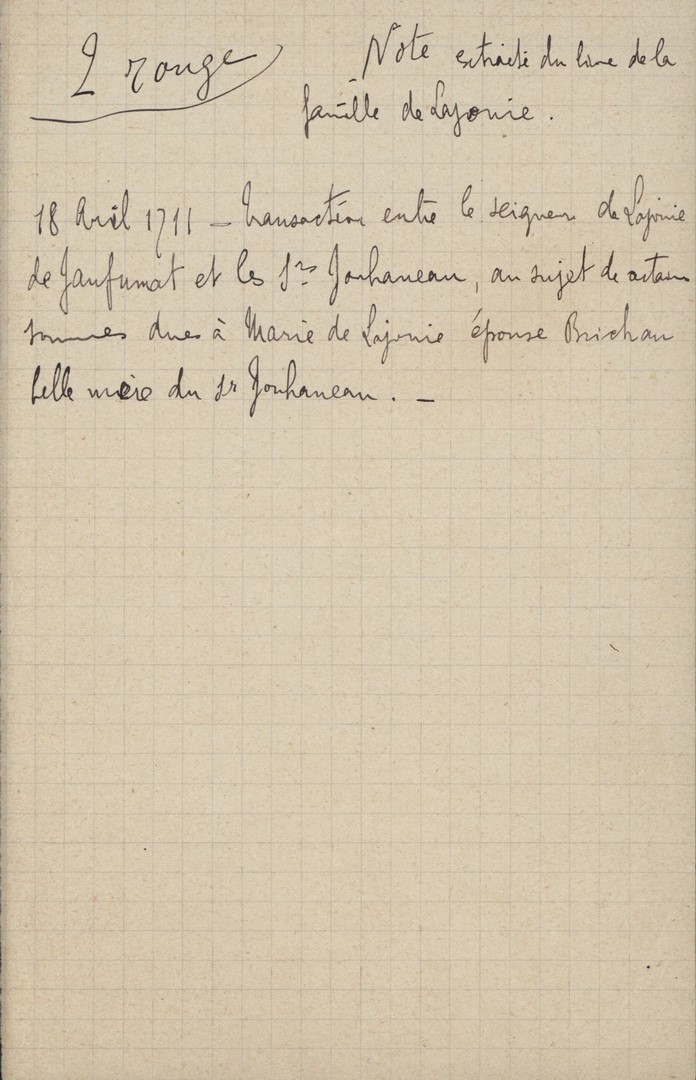 2 rouge
Note extraite du livre de la
famille de Lajonie.
18 Avril 1711 _ transaction entre le seigneur de Lajonie
de Janfumat et les Srs Jouhaneau, au sujet de certaines
sommes dues à Marie de Lajonie épouse Brichau
belle mère du Sr Jouhaneau. _